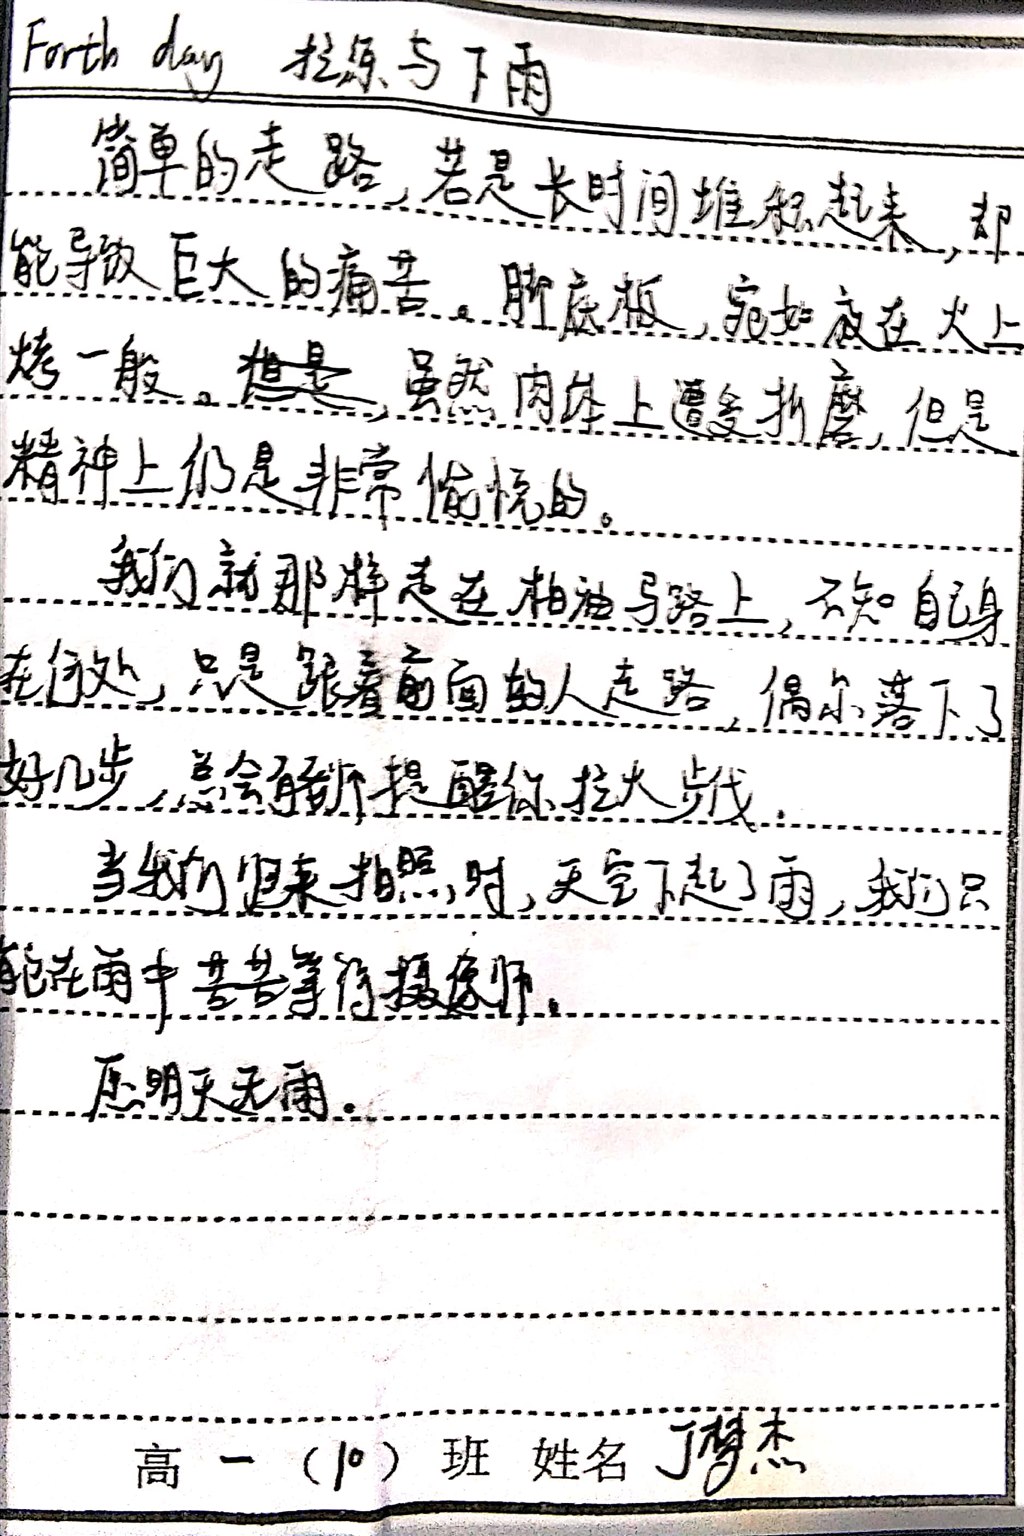 Forth day 拉练与下雨
简单的走路,若是长时间堆积起来,却
能导致巨大的痛苦。脚底板,宛如放在火上
烤一般。虽然肉体上遭受折磨,但是
精神上仍是非常愉悦的。
我们就那样走在柏油马路上,不知自己身
在何处,只是跟着前面的人走路,偶尔落下了
好几步,总会有教师提醒你拉大步伐.
当我们归来拍照时,天空下起了雨,我们只
能在雨中苦苦等待摄像师。
愿明天无雨。
高一(10)班 姓名 丁梦杰